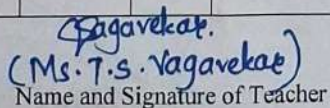 Bagavekar.
(Ms. T.S. Vagavekar)
Name and Signature of Teacher